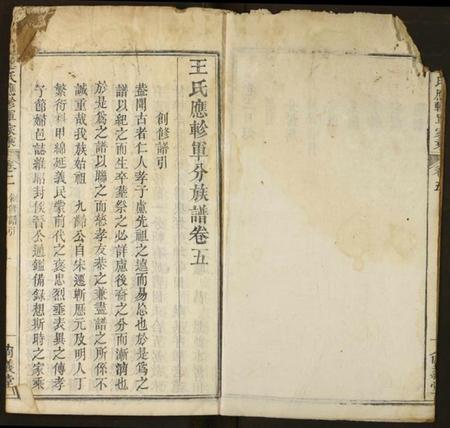 王氏應軫軍分族譜卷五
創修譜引
蓋聞古者仁人孝子慮先祖之遠而易忘也於是為之
譜以紀之而生卒葬祭之必詳慮後裔之分而漸淆也
於是為之譜以聯之而慈孝友恭之兼盡譜之所係不
誠重哉我族始祖 九 公自宋遷蘄歷元及明人丁
繁衍科甲綿延義民蒙前代之褒忠烈垂表異之傳孝
子節婦邑誌 封侯晉公通鑑備錄想斯時之家乘
氏應軫軍家乘
卷
創修譜引
一
氏應軫軍家乘
卷五